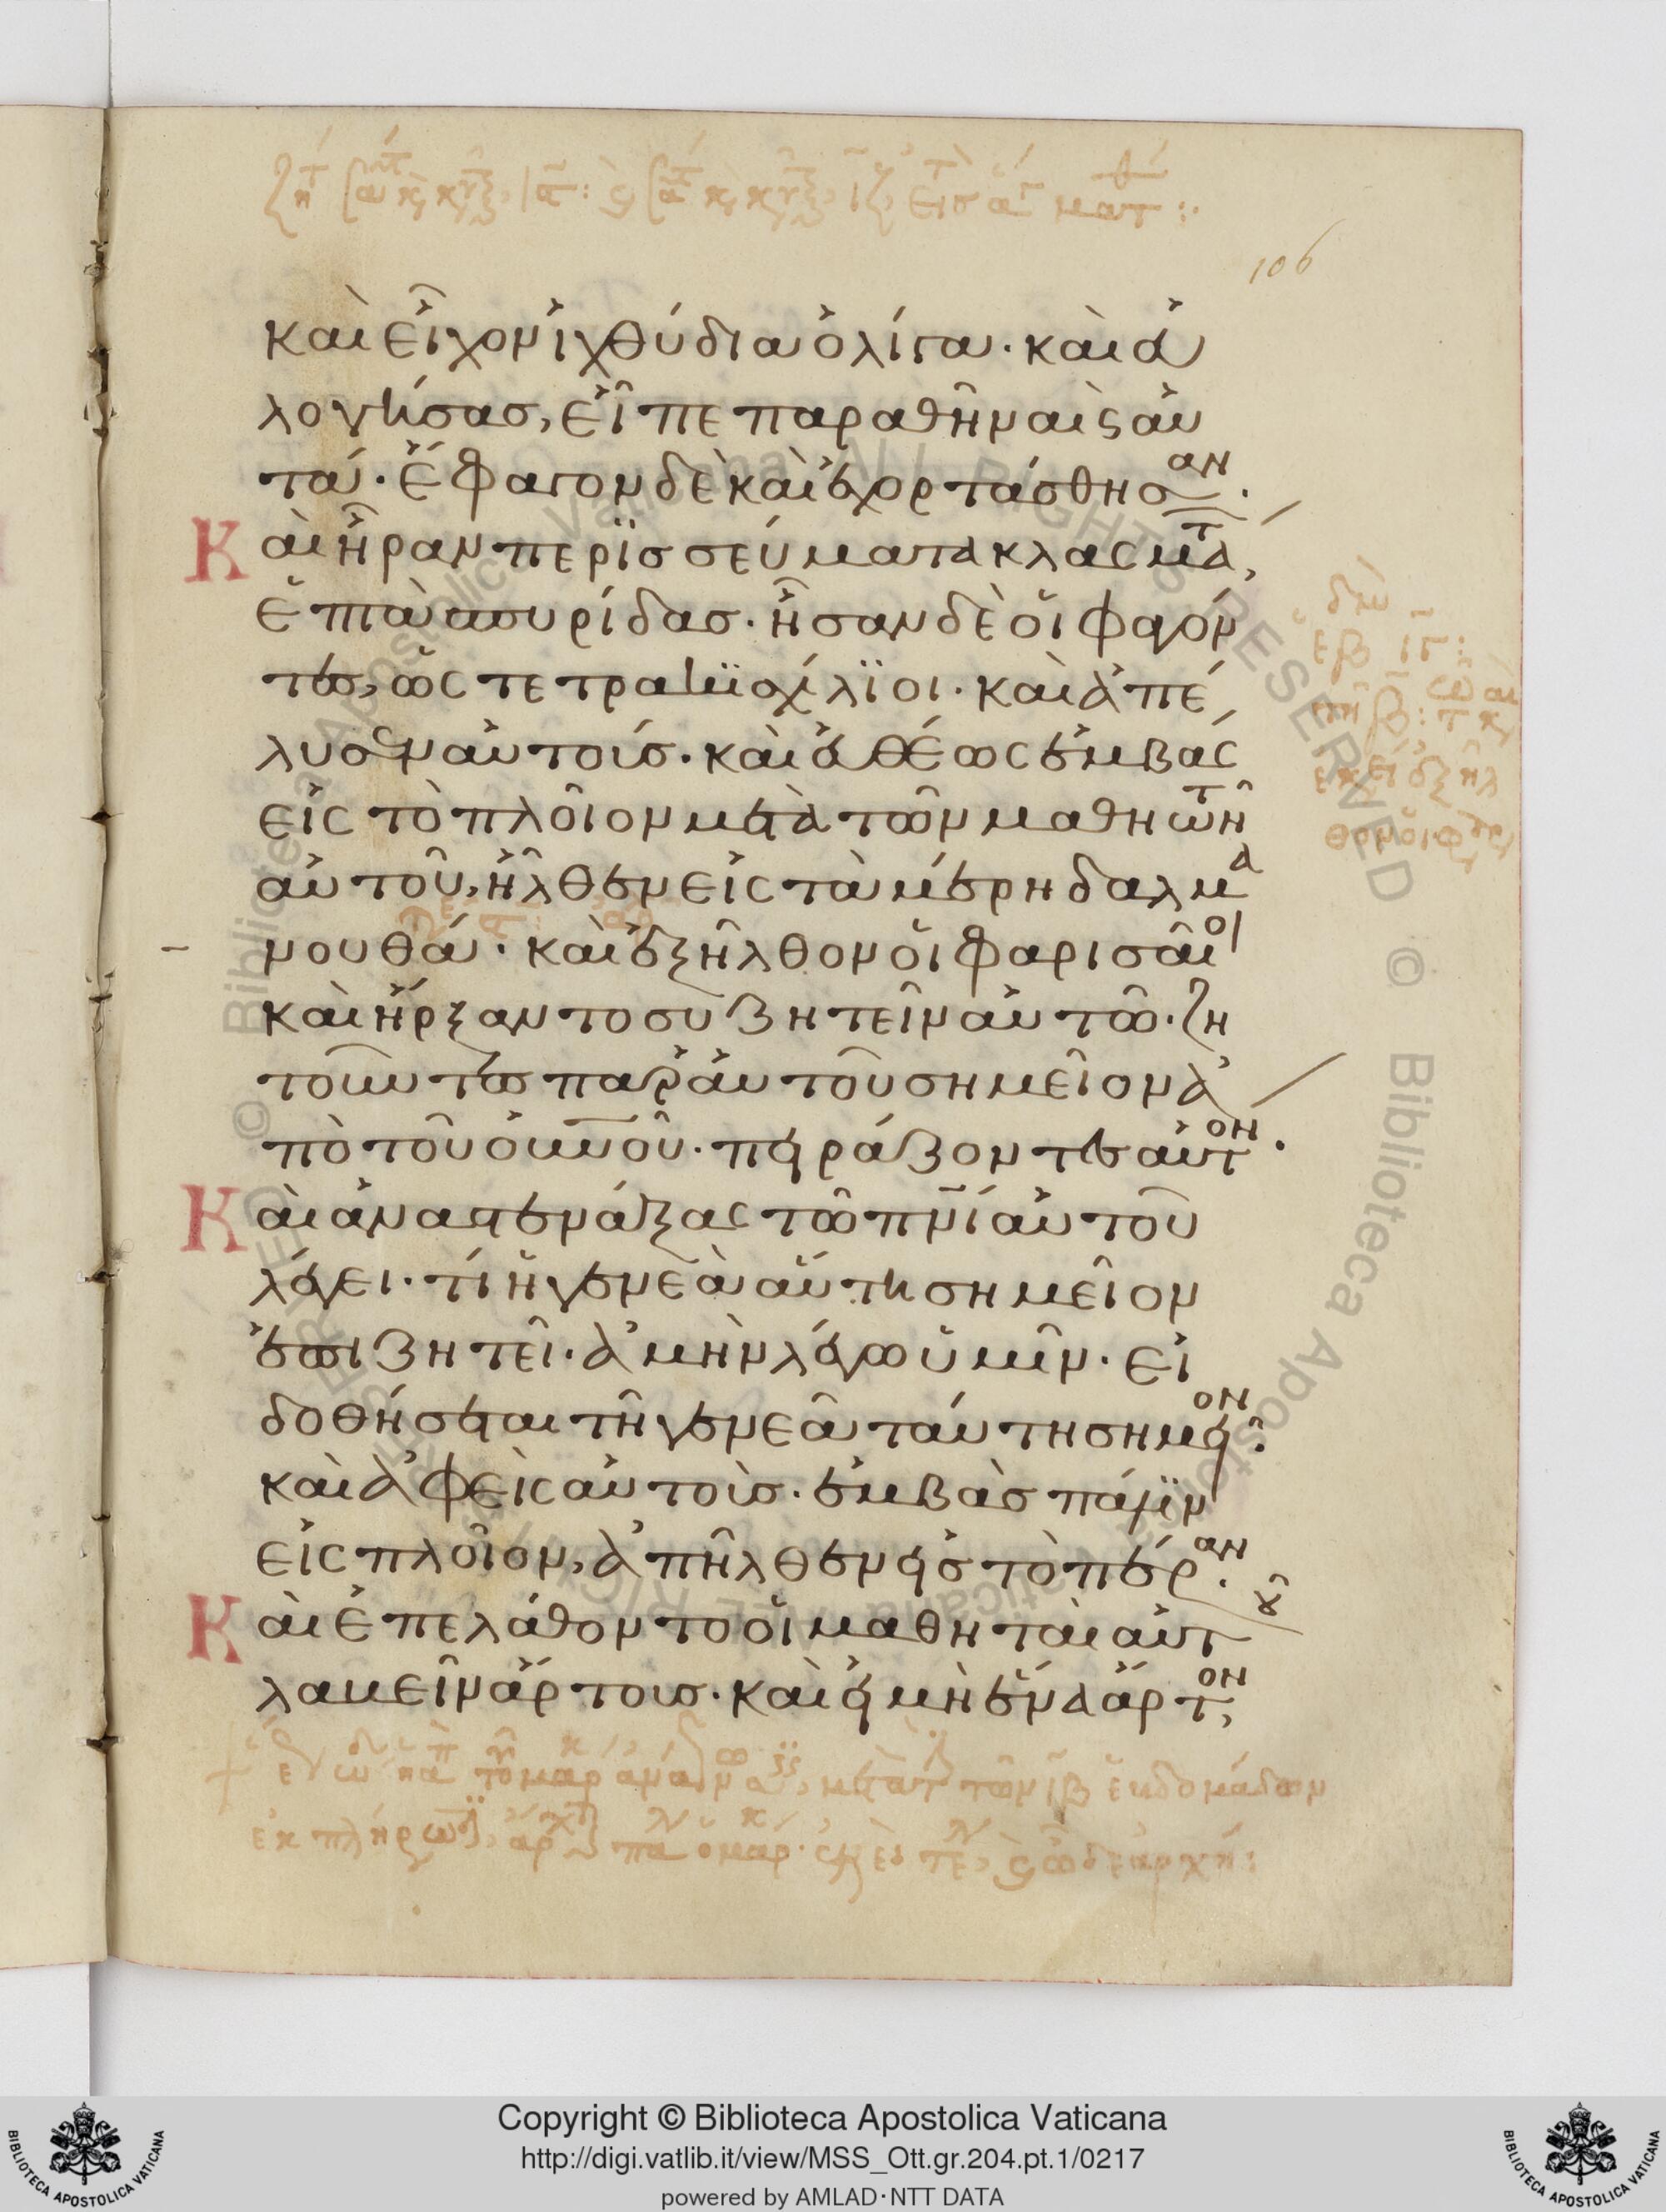 106
καὶ εἶχον ἰχθύδια ὀλίγα· καὶ εὐ
λογήσας, εἶπε παραθῆναι καὶ αὐ
τά· ἔφαγον δὲ καὶ ἐχορτάσθησαν·
Καὶ ἦραν περϊσσεύματα κλασμάτ,
ἑπτὰ σπυρίδας· ἦσαν δὲ οἱ φαγόν
τες, ὡς τετρακϊσχίλϊοι· καὶ ἀπέ
λυσεν αὐτούς· καὶ εὐθέως ἐμβὰς
εἰς τὸ πλοῖον μετὰ τῶν μαθητῶν
αὐτοῦ, ἦλθεν εἰς τὰ μέρη δαλμα
νουθά· καὶ ἐξῆλθον οἱ φαρισαῖοι
καὶ ἤρξαντο συζητεῖν αὐτῶ· ζη
τοῦντες παρ' αὐτοῦ σημεῖον ἀ
πὸ τοῦ οὐνοῦ· πειράζοντες αὐτόν·
Καὶ ἀναστενάξας τῶ πνί αὐτοῦ
λέγει· τί ἡ γενεὰ αὕτη σημεῖον
ἐπιζητεῖ· ἀμὴν λέγω ὑμῖν· εἰ
δοθήσεται τῆ γενεᾶ ταύτη σημεῖον·
καὶ ἀφεὶς αὐτούς· ἐμβὰς πάλϊν
εἰς πλοῖον, ἀπῆλθεν εἰς τὸ πέραν·
Καὶ ἐπελάθοντο οἱ μαθηταὶ αὐτοῦ
λαβεῖν ἄρτους· καὶ εἰ μὴ ἕνα ἄρτον,
Copyright © Biblioteca Apostolica Vaticana
http://digi.vatlib.it/view/MSS_Ott.gr.204.pt.1/0217
powered by AMLAD·NTT DATA
BIBLIOTECA APOSTOLICA VATICANA
BIBLIOTECA APOSTOLICA VATICANA